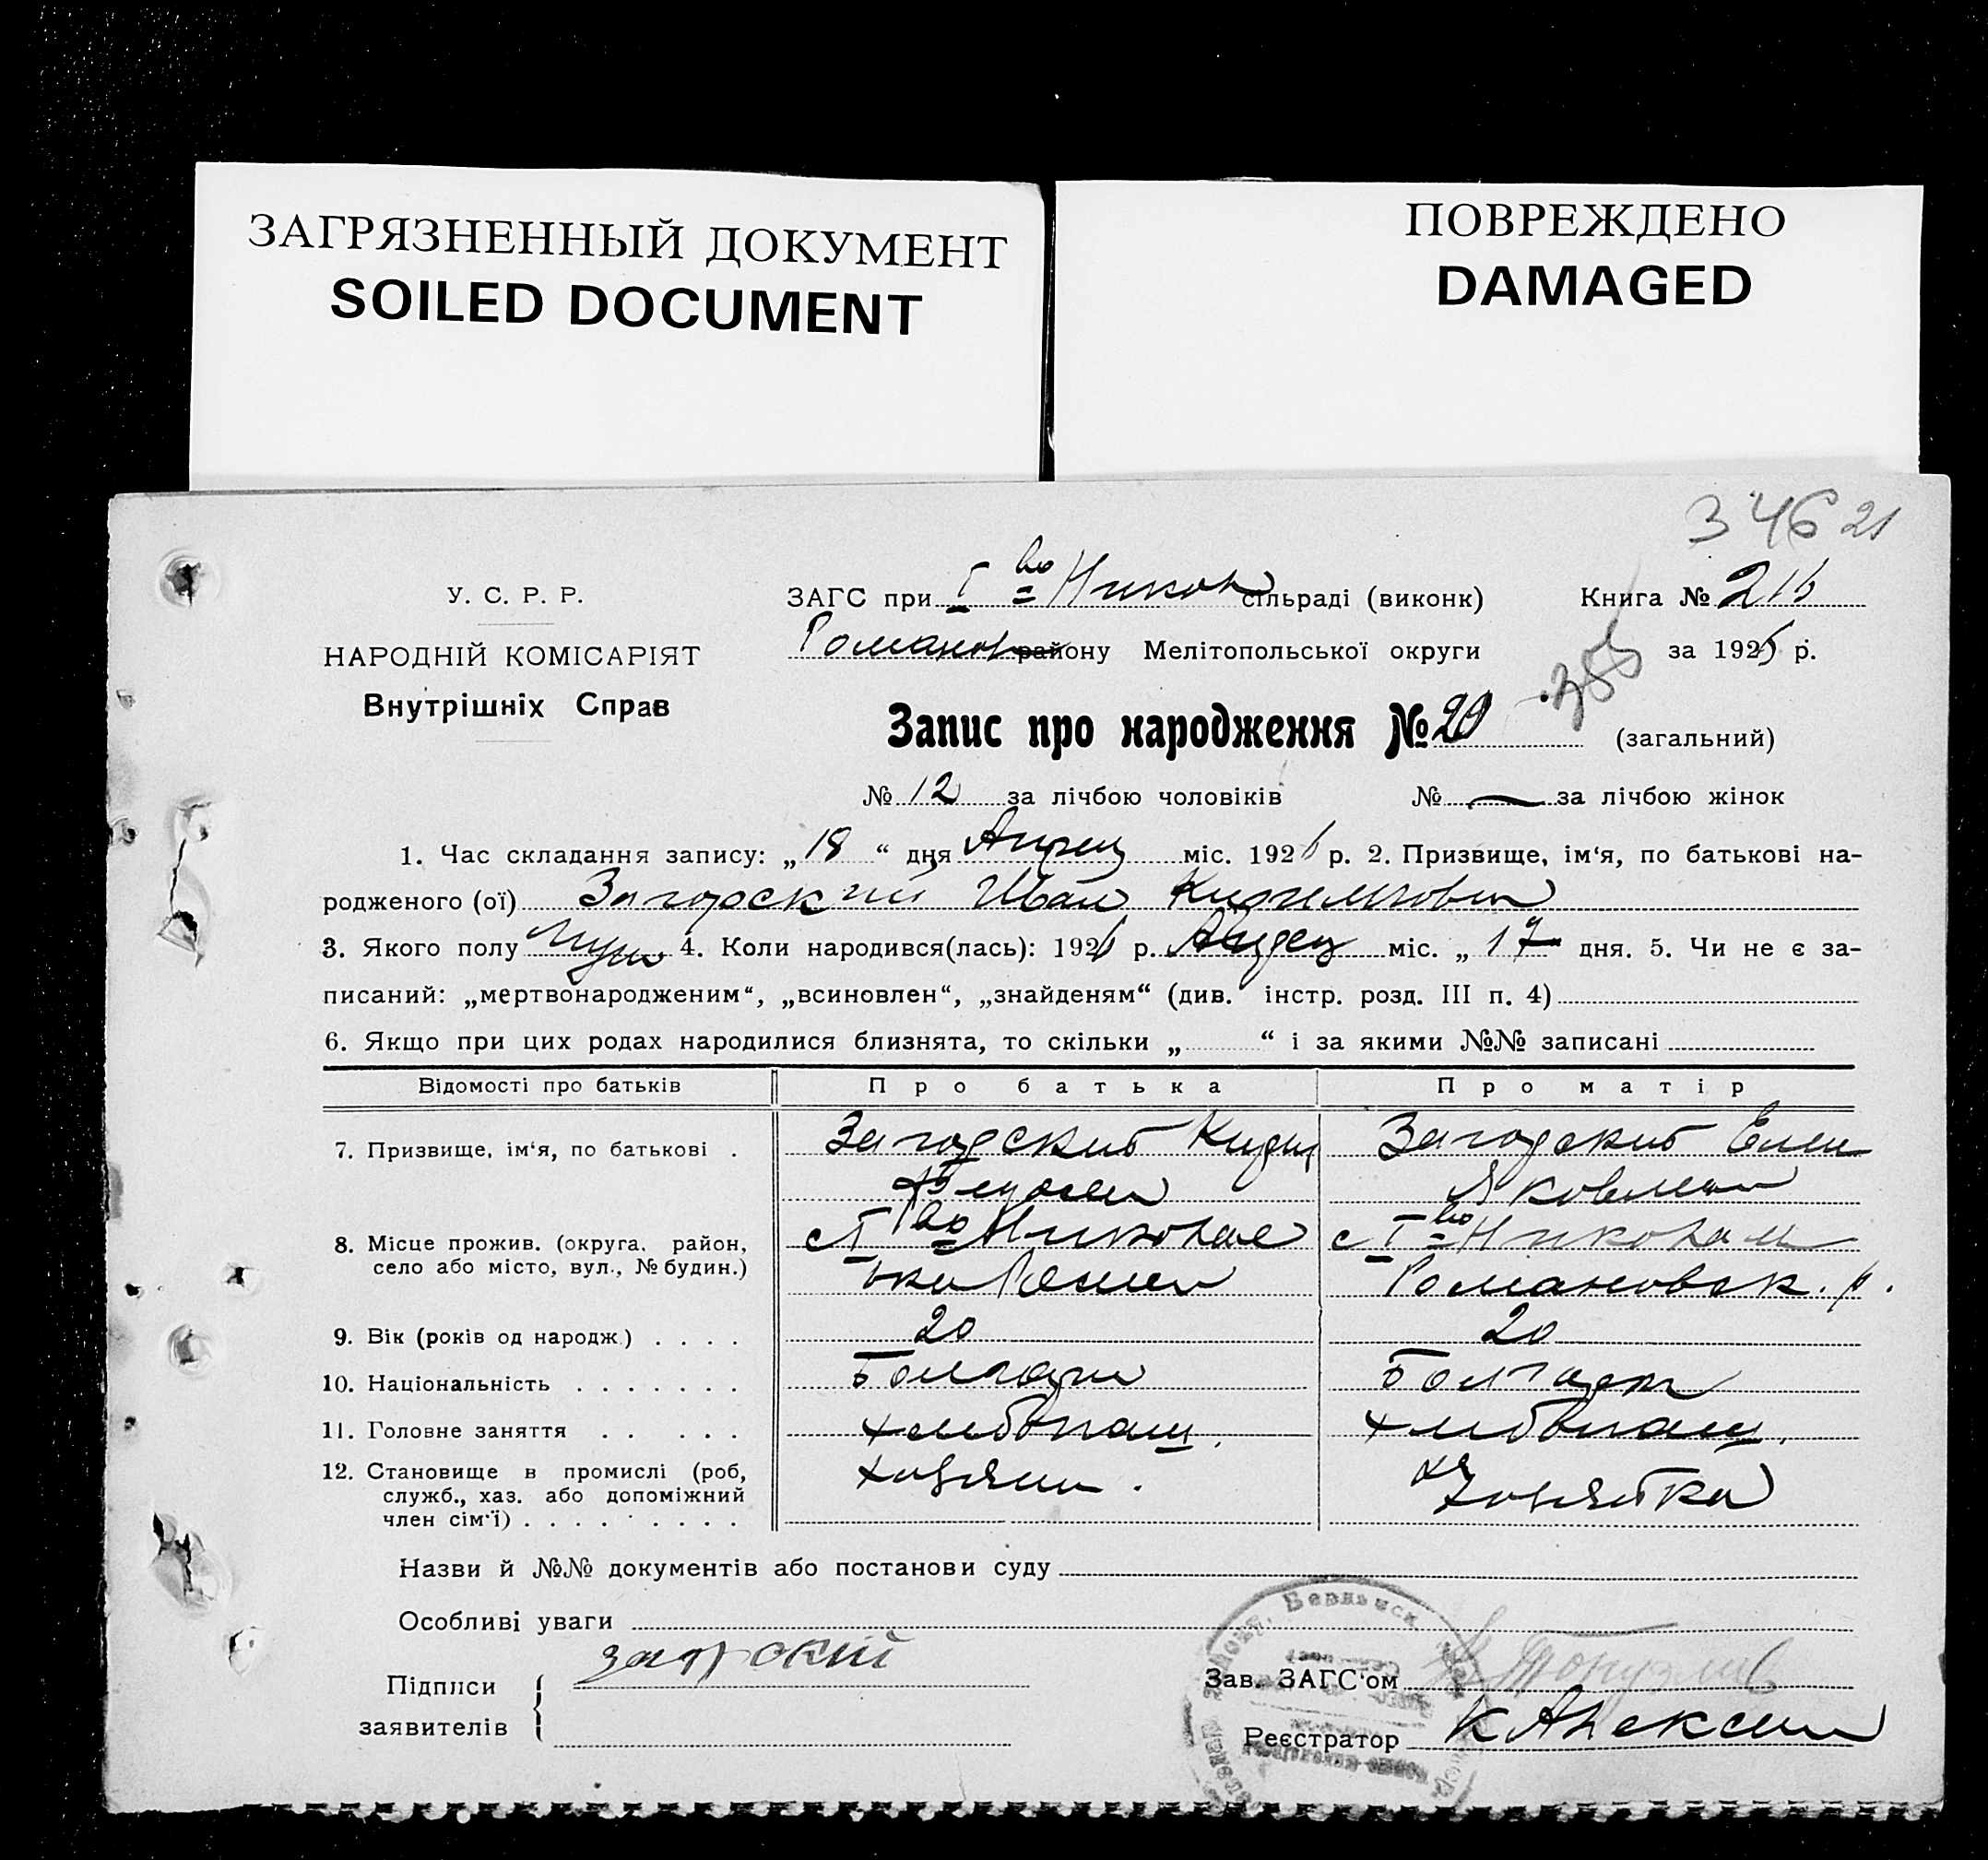 ЗАГРЯЗНЕННЫЙ ДОКУМЕНТ
SOILED DOCUMENT
ПОВРЕЖДЕНО
DAMAGED
346 21
У. С. Р. Р.
НАРОДНІЙ КОМІСАРІЯТ
Внутрішніх Справ
ЗАГС при І во Никол сільраді (виконк) Книга № 216
Романов району Мелітопольської округи за 1926 р.
Запис про народження № 20 (загальний)
№ 12 за лічбою чоловіків № — за лічбою жінок
1. Час складання запису: „18“ дня Апрец міс. 1926 р. 2. Призвище, ім‘я, по батькові на-
родженого (ої) Загорский Иван Кирилович
3. Якого полу муж 4. Коли народився(лась): 1926 р. міс. „17 дня. 5. Чи не є за-
писаний: „мертвонародженим“, „всиновлен“, „знайденям“ (див. інстр. розд. III п. 4)
6. Якщо при цих родах народилися близнята, то скільки „ “ і за якими №№ записані
Відомості про батьків Про батька Про матір
7. Призвище, ім‘я, по батькові . Загорский Кирил Загорский Елен
Яковлеви
8. Місце прожив. (округа, район, с І во Николае с І во Никола
село або місто, вул., № будин.) Романовск. р.
9. Вік (років од народж.) . . . . 20 20
10. Національність . . . . . . . Болгари Болгари
11. Головне заняття . . . . . хлибопаш. хлибопаш.
12. Становище в промислі (роб, хозяин. хозяйка
служб., хаз. або допоміжний
член сім‘ї) . . . . . . . . .
Назви й №№ документів або постанови суду
Особливі уваги
Підписи загорский
заявителів
Зав. ЗАГС‘ом
Реєстратор К Алексеи